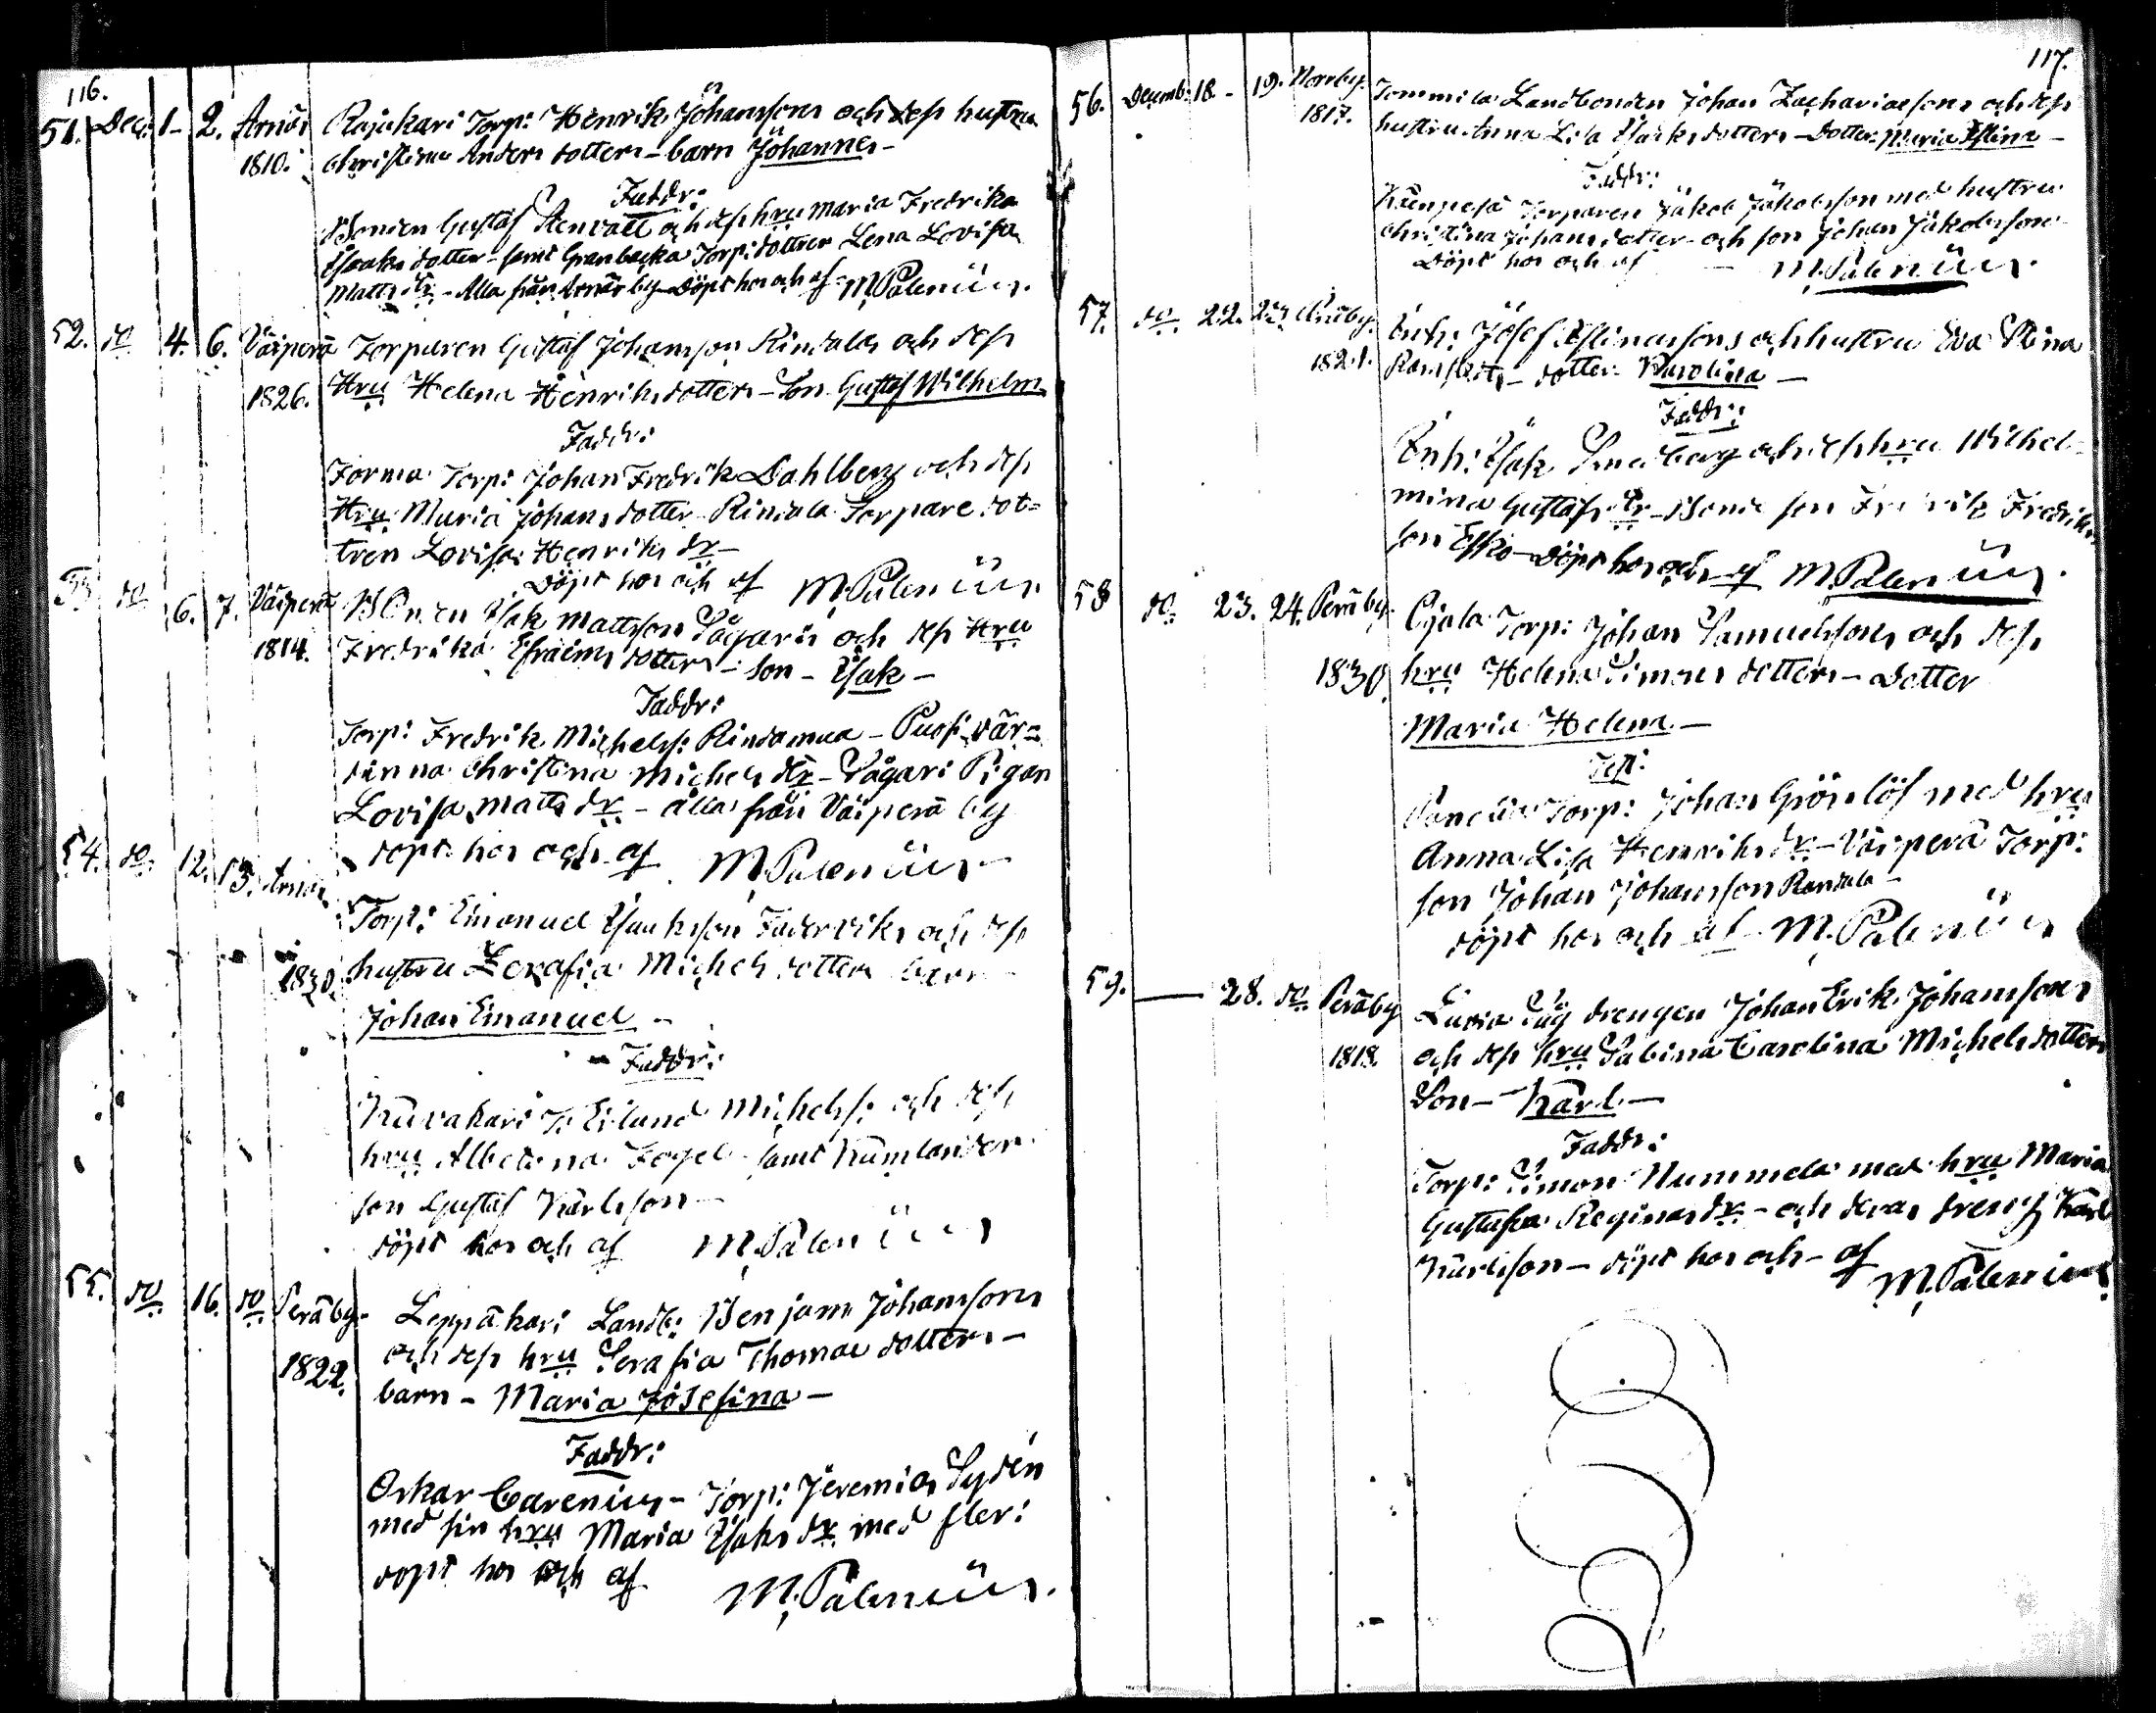 116.
51. Dec: 1- 2. Arnäs Rajukari Torp: Henrik Johanssons och dess hustru
1810. Christina Anders dotters - barn Johannes -
Faddr:
Bonden Gustaf Stenvall och dess hru Maria Fredrika
Isaks dotter - samt Granbacka Torp: dottren Lena Lovisa
Matts dr - Alla från Arnäs by - Döpt hos och af M. Palenius.
52. do 4. 6. Väiperä Torparen Gustaf Johansson Rindala och dess
1826. Hru Helena Henriks dotters - Son Gustaf Wilhelm
Faddr:
Jorma Torp: Johan Fredrik Dahlberg och dess
Hru Maria Johans dotter Rindala Torpare dot=
tren Lovisa Henriks dr -
Döpt hos och af M. Palenius
53. do 6. 7. Väiperä Bonden Isak Mattsson Sågaris och dess Hru
1814. Fredrika Efraims dotters - son - Isak -
Faddr:
Torp: Fredrik Michelss: Rindamaa - Puosi vär=
dinna Christina Michels dr - Sågari Pigan
Lovisa Matts dr - alla från Väiperä by
döpt hos och af M. Palenius
54. do 12. 13. Arnäs Torp: Emanuel Isaksson Faderviks och dess
1830. hustru Serafia Michels dotters barn
Johan Emanuel -
Faddr:
Kuvakari T. Erland Michelss: och dess
hru Albertina Fogel - samt Kumlander
son Gustaf Karlsson -
döpt hos och af M. Palenius
55. do 16. do Peräby - Leppäkari Landb: Benjam Johanssons
1822. och dess hru Serafia Thomae dotters -
barn - Maria Josefina -
Faddr:
Oskar Carenius - Torp: Jeremias Sydén
med sin hru Maria Isaks dr med fler:
döpt hos och af M. Palenius.
117.
56. Decemb: 18. - 19. Norrby. Tommila Landbonden Johan Zachariaesons och dess
1817. hustru Anna Lisa Isaks dotters - Dotter Maria Stina -
Faddr:
Torparen Jakob Jakobsson med hustru
Christina Johans dotter - och son Johan Jakobsson
Döpt hos och af - M. Palenius.
57. do 22. 23. Inh: Josef Stinassons och hustru Eva Stina
1821. dotter Karolina -
Faddr:
Inh: Isak Smedberg och dess hru Wilhel=
mina Gustafs dr - Bonde son Fredrik Fredriks
son Esko - döpt hos och af M. Palenius.
58 do. 23. 24. Peräby. Ojala Torp: Johan Samuelssons och dess
1830. hru Helena Simons dotters - Dotter
Maria Helena -
Test:
Torp: Johan Grönlöf med hru
Anna Lisa Henriks dr - Väiperä Torp:
son Johan Johansson Randala -
döpt hos och af M. Palenius
59. - 28. do Peräby Luoria Såg drengen Johan Erik Johanssons
1818. och dess hru Sabina Carolina Michels dotters
Son - Karl -
Faddr:
Torp: Simon Nummela med hru Maria
Gustafva Reginas dr - och deras dreng Karl
Karlsson - döpt hos och - af M. Palenius